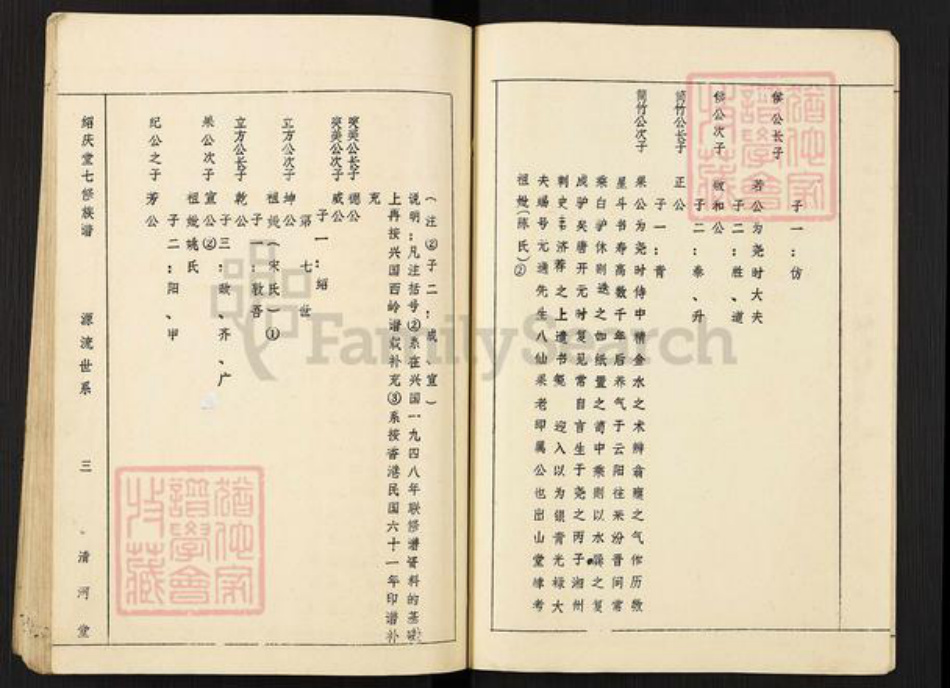 修公长子
子一：仿
若公为尧时大夫
子二：胜、道
修公次子 敬和公
子二：乘、升
简竹公长子 正公
子一：青
简竹公次子 果公为尧时侍中精金水之术辨翕癕之气作历数
星斗书寿高数千年后养气于云阳往来汾晋间常
乘白驴休则迭之如纸置之箭中乘则以水噀之复
成驴矣唐开元时复见常自言生于尧之丙子湘州
刺史韦济荐之上遣书冕 迎入以为银青光禄大
夫赐号元通先生八仙果老即属公也出山堂肆考
祖妣（陈氏）②
（注②子二：成、宣）
说明：凡注括号②系在兴国一九四八年联修谱资料的基础
上再按兴国西岭谱似补充③系按香港民国六十一年印谱补
充
奕美公长子 德公
奕美公次子 威公
子一：绍
第七世
立方公次子 坤公
祖妣（宋氏）①
子一：敦吾
立方公长子 乾公
子三：政、齐、广
果公次子 宣公②
祖妣姚氏
子二：阳、甲
纪公之子 芳公
绍庆堂七修族谱 源流世系 三 清河堂
猶他家譜學會收藏
猶他家譜學會收藏
FamilySearch